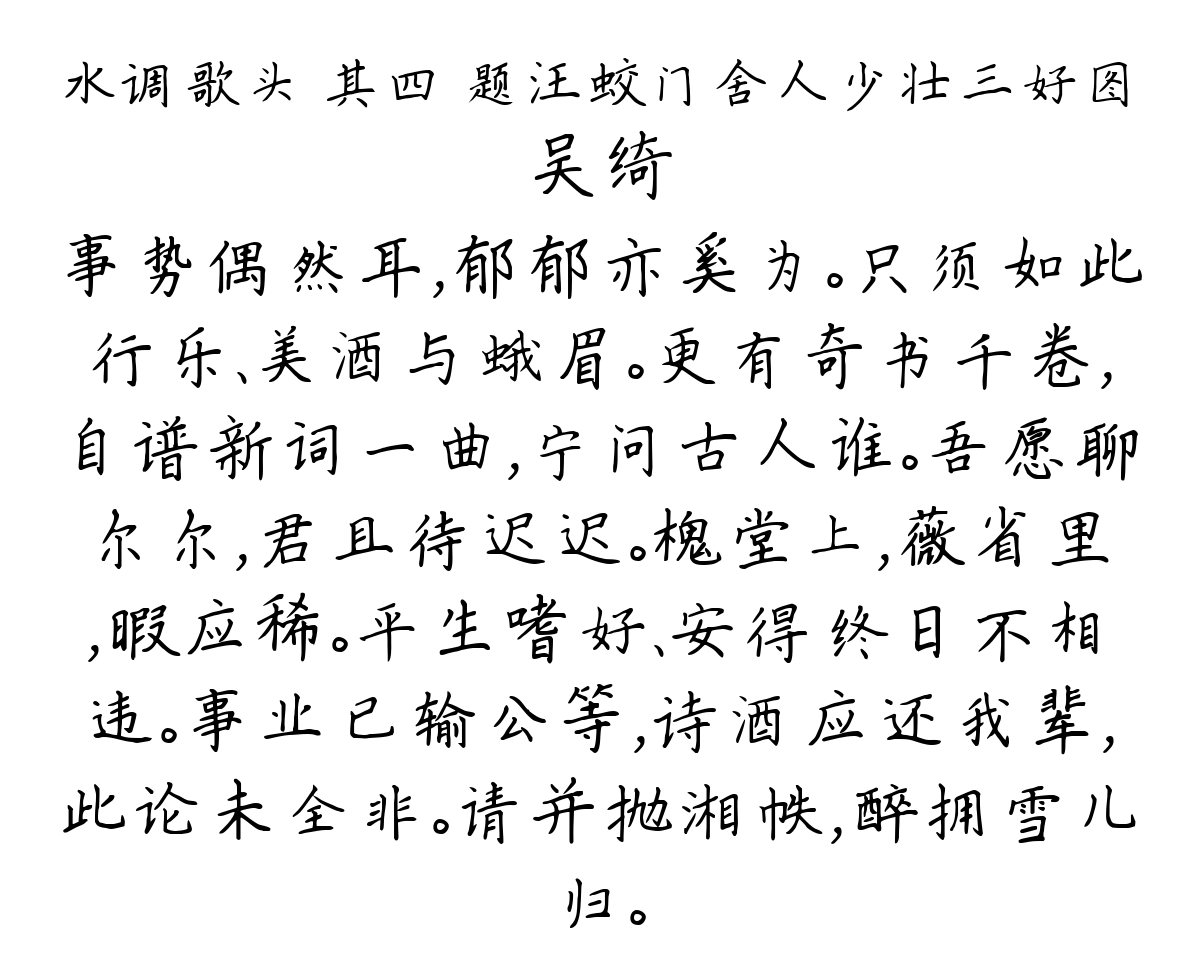 水调歌头 其四 题汪蛟门舍人少壮三好图
吴绮
事势偶然耳,郁郁亦奚为。只须如此
行乐、美酒与蛾眉。更有奇书千卷,
自谱新词一曲,宁问古人谁。吾愿聊
尔尔,君且待迟迟。槐堂上,薇省里
,暇应稀。平生嗜好、安得终日不相
违。事业已输公等,诗酒应还我辈,
此论未全非。请并抛湘帙,醉拥雪儿
归。